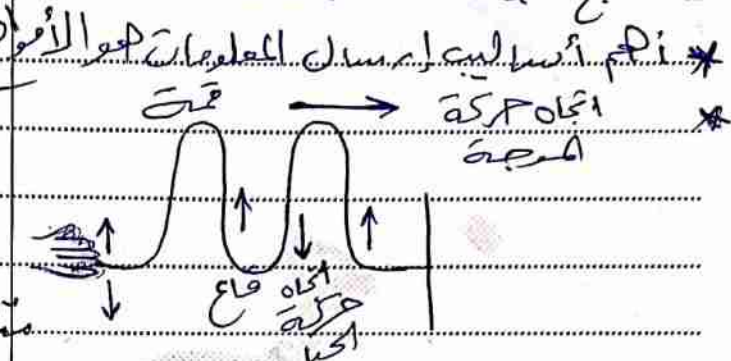 * أهم أساليب إرسال المعلومات هو الأمواج
* اتجاه حركة
الموجة
قمة
قاع
اتجاه
حركة